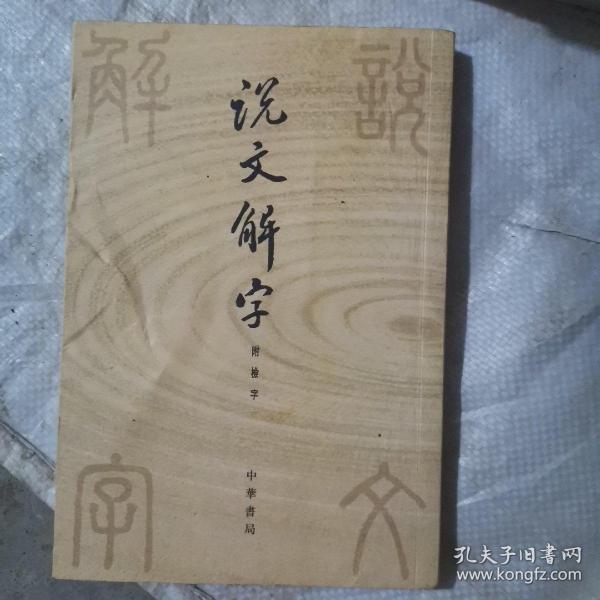 说文解字
附檢字
中華書局
說
文
解
字
孔夫子旧书网
www.kongfz.com